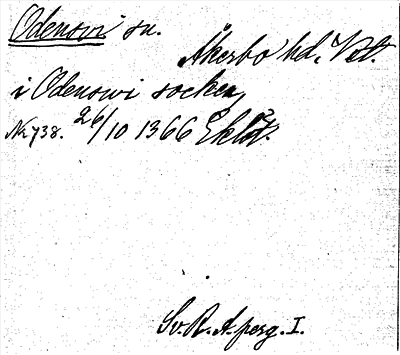 Odensvi sn.
Åkerbo hd, Vstl.
i Odenswi socken,
Nr 738. 26/10 1366 Eklöt.
Sv. R. A. perg. I.